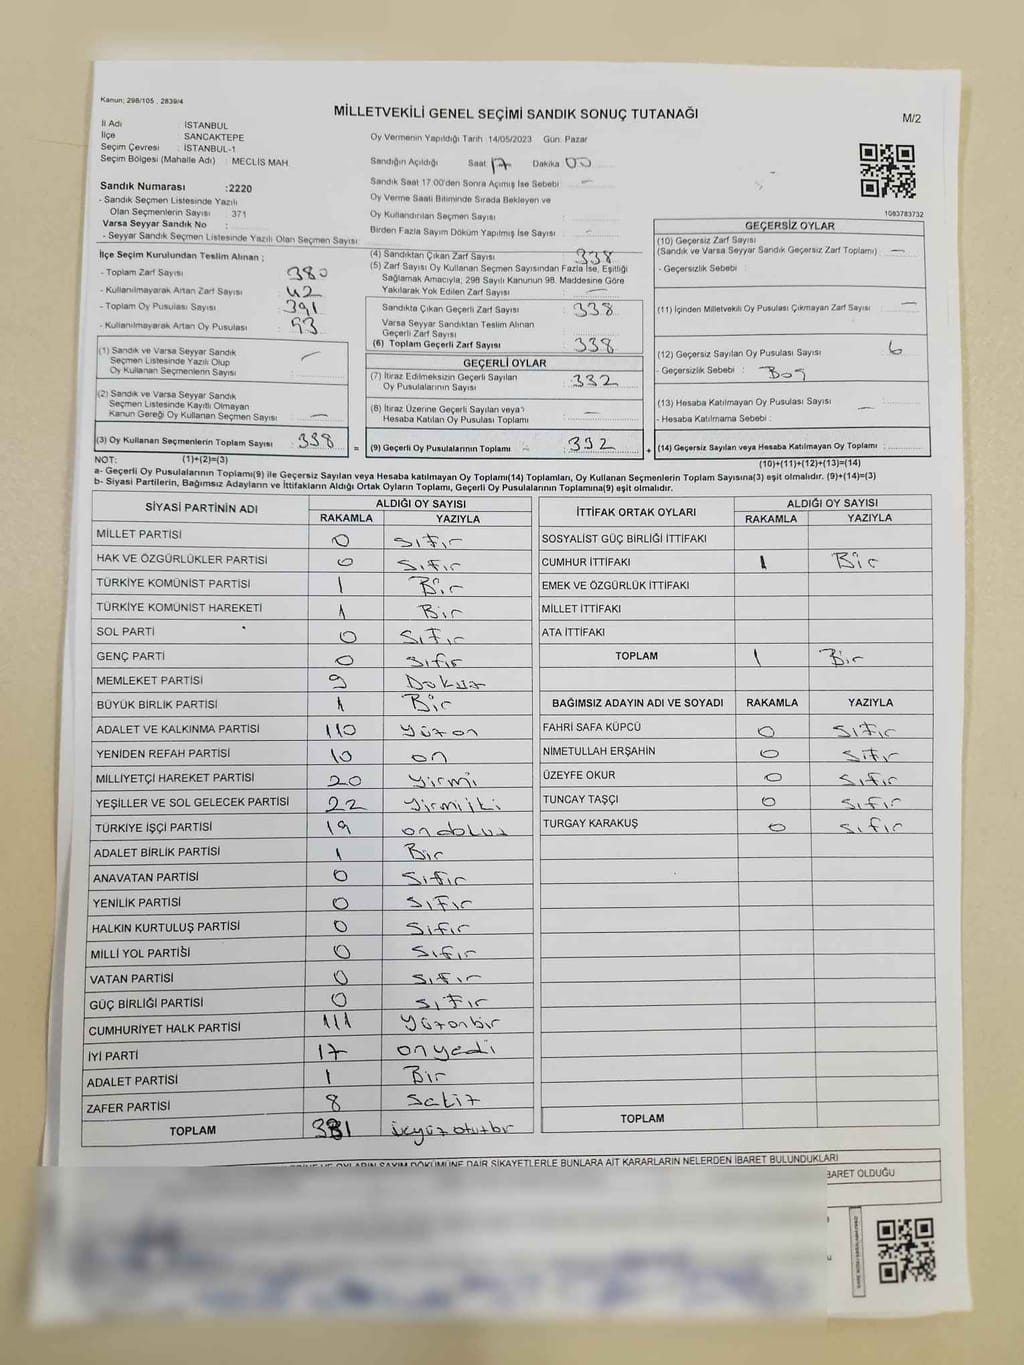 Kanun; 298/105 , 2839/4
MİLLETVEKİLİ GENEL SEÇİMİ SANDIK SONUÇ TUTANAĞI
M/2
İl Adı : İSTANBUL
İlçe : SANCAKTEPE
Seçim Çevresi : İSTANBUL-1
Seçim Bölgesi (Mahalle Adı) : MECLİS MAH.
Sandık Numarası :2220
- Sandık Seçmen Listesinde Yazılı
Olan Seçmenlerin Sayısı : 371
Varsa Seyyar Sandık No :
- Seyyar Sandık Seçmen Listesinde Yazılı Olan Seçmen Sayısı:
Oy Vermenin Yapıldığı Tarih :14/05/2023 Gün: Pazar
Sandığın Açıldığı Saat 17 Dakika 00
Sandık Saat 17.00'den Sonra Açımış İse Sebebi: —
Oy Verme Saati Bitiminde Sırada Bekleyen ve
Oy Kullandırılan Seçmen Sayısı :
Birden Fazla Sayım Döküm Yapılmış İse Sayısı : —
1083783732
İlçe Seçim Kurulundan Teslim Alınan ;
- Toplam Zarf Sayısı : 380
- Kullanılmayarak Artan Zarf Sayısı : 42
- Toplam Oy Pusulası Sayısı : 391
- Kullanılmayarak Artan Oy Pusulası : 53
(1) Sandık ve Varsa Seyyar Sandık
Seçmen Listesinde Yazılı Olup
Oy Kullanan Seçmenlerin Sayısı : —
(2) Sandık ve Varsa Seyyar Sandık
Seçmen Listesinde Kayıtlı Olmayan
Kanun Gereği Oy Kullanan Seçmen Sayısı : —
(3) Oy Kullanan Seçmenlerin Toplam Sayısı : 338
(4) Sandıktan Çıkan Zarf Sayısı : 338
(5) Zarf Sayısı Oy Kullanan Seçmen Sayısından Fazla İse, Eşitliği
Sağlamak Amacıyla, 298 Sayılı Kanunun 98. Maddesine Göre
Yakılarak Yok Edilen Zarf Sayısı : —
Sandıkta Çıkan Geçerli Zarf Sayısı : 338
Varsa Seyyar Sandıktan Teslim Alınan
Geçerli Zarf Sayısı :
(6) Toplam Geçerli Zarf Sayısı : 338
GEÇERLİ OYLAR
(7) İtiraz Edilmeksizin Geçerli Sayılan
Oy Pusulalarının Sayısı : 332
(8) İtiraz Üzerine Geçerli Sayılan veya
Hesaba Katılan Oy Pusulası Toplamı : —
= (9) Geçerli Oy Pusulalarının Toplamı : 332 +
GEÇERSİZ OYLAR
(10) Geçersiz Zarf Sayısı
(Sandık ve Varsa Seyyar Sandık Geçersiz Zarf Toplamı) : —
- Geçersizlik Sebebi :
(11) İçinden Milletvekili Oy Pusulası Çıkmayan Zarf Sayısı : —
(12) Geçersiz Sayılan Oy Pusulası Sayısı : 6
- Geçersizlik Sebebi : Boş
(13) Hesaba Katılmayan Oy Pusulası Sayısı : —
- Hesaba Katılmama Sebebi :
(14) Geçersiz Sayılan veya Hesaba Katılmayan Oy Toplamı :
NOT: (1)+(2)=(3) (10)+(11)+(12)+(13)=(14)
a- Geçerli Oy Pusulalarının Toplamı(9) ile Geçersiz Sayılan veya Hesaba katılmayan Oy Toplamı(14) Toplamları, Oy Kullanan Seçmenlerin Toplam Sayısına(3) eşit olmalıdır. (9)+(14)=(3)
b- Siyasi Partilerin, Bağımsız Adayların ve İttifakların Aldığı Ortak Oyların Toplamı, Geçerli Oy Pusulalarının Toplamına(9) eşit olmalıdır.
SİYASİ PARTİNİN ADI ALDIĞI OY SAYISI
RAKAMLA YAZIYLA
MİLLET PARTİSİ 0 sıfır
HAK VE ÖZGÜRLÜKLER PARTİSİ 0 sıfır
TÜRKİYE KOMÜNİST PARTİSİ 1 Bir
TÜRKİYE KOMÜNİST HAREKETİ 1 Bir
SOL PARTİ 0 sıfır
GENÇ PARTİ 0 sıfır
MEMLEKET PARTİSİ 9 Dokuz
BÜYÜK BİRLİK PARTİSİ 1 Bir
ADALET VE KALKINMA PARTİSİ 110 yüzon
YENİDEN REFAH PARTİSİ 10 on
MİLLİYETÇİ HAREKET PARTİSİ 20 yirmi
YEŞİLLER VE SOL GELECEK PARTİSİ 22 yirmiiki
TÜRKİYE İŞÇİ PARTİSİ 19 ondokuz
ADALET BİRLİK PARTİSİ 1 Bir
ANAVATAN PARTİSİ 0 sıfır
YENİLİK PARTİSİ 0 sıfır
HALKIN KURTULUŞ PARTİSİ 0 sıfır
MİLLİ YOL PARTİSİ 0 sıfır
VATAN PARTİSİ 0 sıfır
GÜÇ BİRLİĞİ PARTİSİ 0 sıfır
CUMHURİYET HALK PARTİSİ 111 yüzonbir
İYİ PARTİ 17 onyedi
ADALET PARTİSİ 1 Bir
ZAFER PARTİSİ 8 sekiz
TOPLAM 331 üçyüzotuzbir
İTTİFAK ORTAK OYLARI ALDIĞI OY SAYISI
RAKAMLA YAZIYLA
SOSYALİST GÜÇ BİRLİĞİ İTTİFAKI
CUMHUR İTTİFAKI 1 Bir
EMEK VE ÖZGÜRLÜK İTTİFAKI
MİLLET İTTİFAKI
ATA İTTİFAKI
TOPLAM 1 Bir
BAĞIMSIZ ADAYIN ADI VE SOYADI RAKAMLA YAZIYLA
FAHRİ SAFA KÜPCÜ 0 sıfır
NİMETULLAH ERŞAHİN 0 sıfır
ÜZEYFE OKUR 0 sıfır
TUNCAY TAŞÇI 0 sıfır
TURGAY KARAKUŞ 0 sıfır
TOPLAM
SAYIM DÖKÜMÜNE DAİR ŞİKAYETLERLE BUNLARA AİT KARARLARIN NELERDEN İBARET BULUNDUKLARI
BARET OLDUĞU